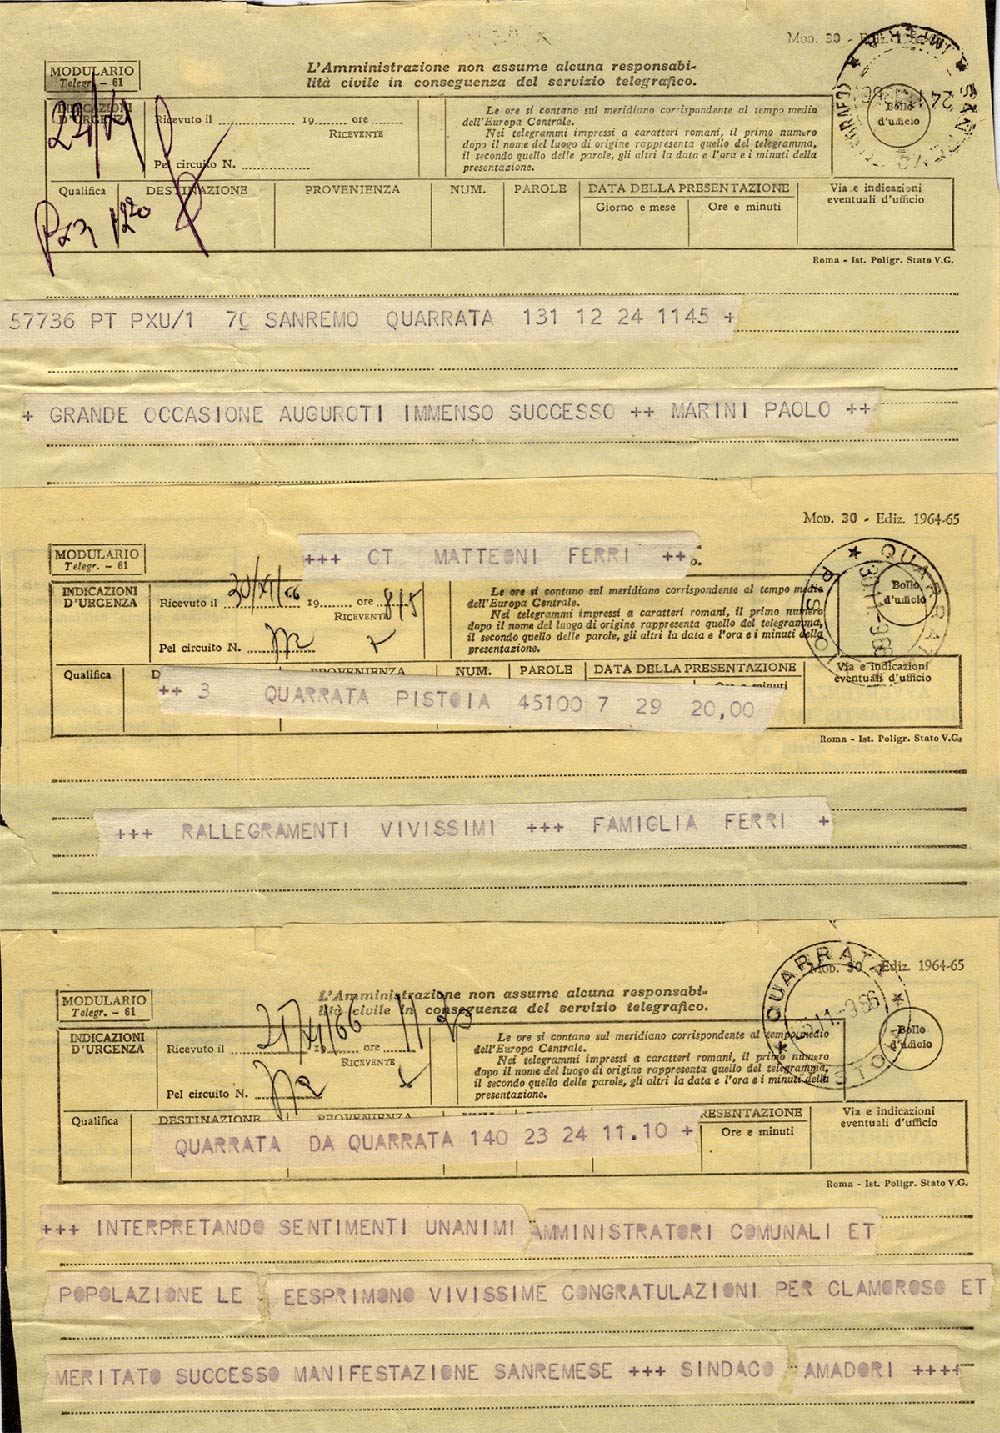 Mod. 30 - Ediz. 1
MODULARIO
Telegr. - 61
L'Amministrazione non assume alcuna responsabi-
lità civile in conseguenza del servizio telegrafico.
INDICAZIONI
D'URGENZA
Ricevuto il 19 ore
RICEVENTE
Pel circuito N.
Le ore si contano sul meridiano corrispondente al tempo medio
dell'Europa Centrale.
Nei telegrammi impressi a caratteri romani, il primo numero
dopo il nome del luogo di origine rappresenta quello del telegramma,
il secondo quello delle parole, gli altri la data e l'ora e i minuti della
presentazione.
Bollo
d'ufficio
Qualifica DESTINAZIONE PROVENIENZA NUM. PAROLE DATA DELLA PRESENTAZIONE Via e indicazioni
eventuali d'ufficio
Giorno e mese Ore e minuti
Roma - Ist. Poligr. Stato V.G.
57736 PT PXU/1 70 SANREMO QUARRATA 131 12 24 1145 +
+ GRANDE OCCASIONE AUGUROTI IMMENSO SUCCESSO ++ MARINI PAOLO ++
Mod. 30 - Ediz. 1964-65
MODULARIO
Telegr. - 61
+++ CT MATTEONI FERRI ++
INDICAZIONI
D'URGENZA
Ricevuto il 19 ore
RICEVENTE
Pel circuito N.
Le ore si contano sul meridiano corrispondente al tempo medio
dell'Europa Centrale.
Nei telegrammi impressi a caratteri romani, il primo numero
dopo il nome del luogo di origine rappresenta quello del telegramma,
il secondo quello delle parole, gli altri la data e l'ora e i minuti della
presentazione.
QUARRATA
PISTOIA
Bollo
d'ufficio
Qualifica PROVENIENZA NUM. PAROLE DATA DELLA PRESENTAZIONE Via e indicazioni
eventuali d'ufficio
Ore e minuti
++ 3 QUARRATA PISTOIA 45100 7 29 20,00
Roma - Ist. Poligr. Stato V.G.
+++ RALLEGRAMENTI VIVISSIMI +++ FAMIGLIA FERRI +
Mod. 30 - Ediz. 1964-65
MODULARIO
Telegr. - 61
L'Amministrazione non assume alcuna responsabi-
lità civile in conseguenza del servizio telegrafico.
INDICAZIONI
D'URGENZA
Ricevuto il 24/XI/66 19 ore
RICEVENTE
Pel circuito N.
Le ore si contano sul meridiano corrispondente al tempo medio
dell'Europa Centrale.
Nei telegrammi impressi a caratteri romani, il primo numero
dopo il nome del luogo di origine rappresenta quello del telegramma,
il secondo quello delle parole, gli altri la data e l'ora e i minuti della
presentazione.
QUARRATA
Bollo
d'ufficio
Qualifica DESTINAZIONE PROVENIENZA PRESENTAZIONE Via e indicazioni
eventuali d'ufficio
Ore e minuti
QUARRATA DA QUARRATA 140 23 24 11.10 +
Roma - Ist. Poligr. Stato V.G.
+++ INTERPRETANDO SENTIMENTI UNANIMI AMMINISTRATORI COMUNALI ET
POPOLAZIONE LE EESPRIMONO VIVISSIME CONGRATULAZIONI PER CLAMOROSO ET
MERITATO SUCCESSO MANIFESTAZIONE SANREMESE +++ SINDACO AMADORI ++++